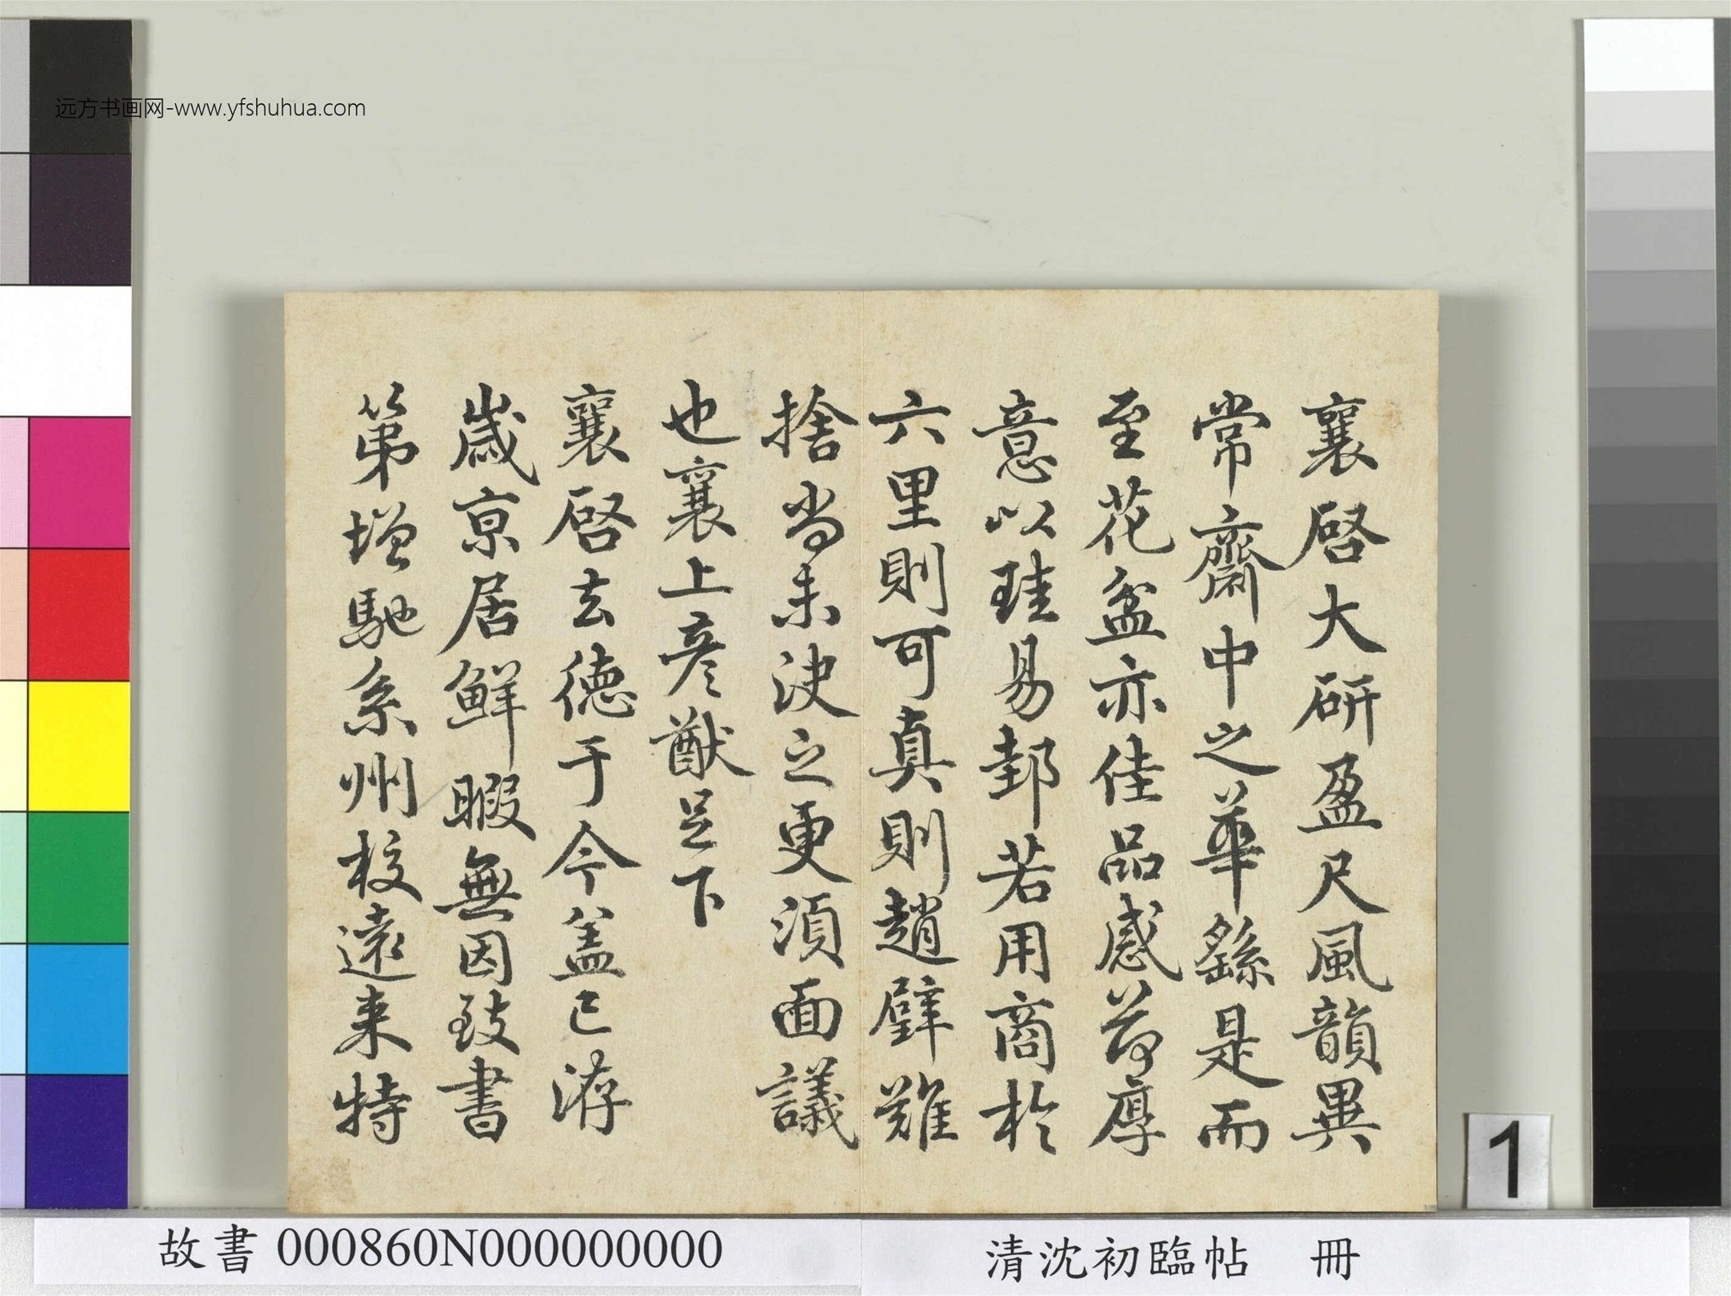 远方书画网-www.yfshuhua.com
襄啓大研盈尺風韻異
常齋中之華繇是而
至花盆亦佳品感荷厚
意以珪易邽若用商於
六里則可真則趙璧難
捨尚未決之更須面議
也襄上彦猷足下
襄啓去德于今蓋已洊
歲京居鮮暇無因致書
第增馳系州校遠来特
1
故書 000860N000000000
清沈初臨帖 冊